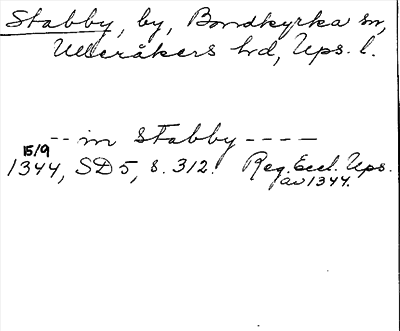 Stabby, by, Bondkyrka sn,
Ulleråkers hd, Ups. l.
-- in Stabby ----
15/9
1344, SD 5, s. 312. Reg. Eccl. Ups.
av 1344.